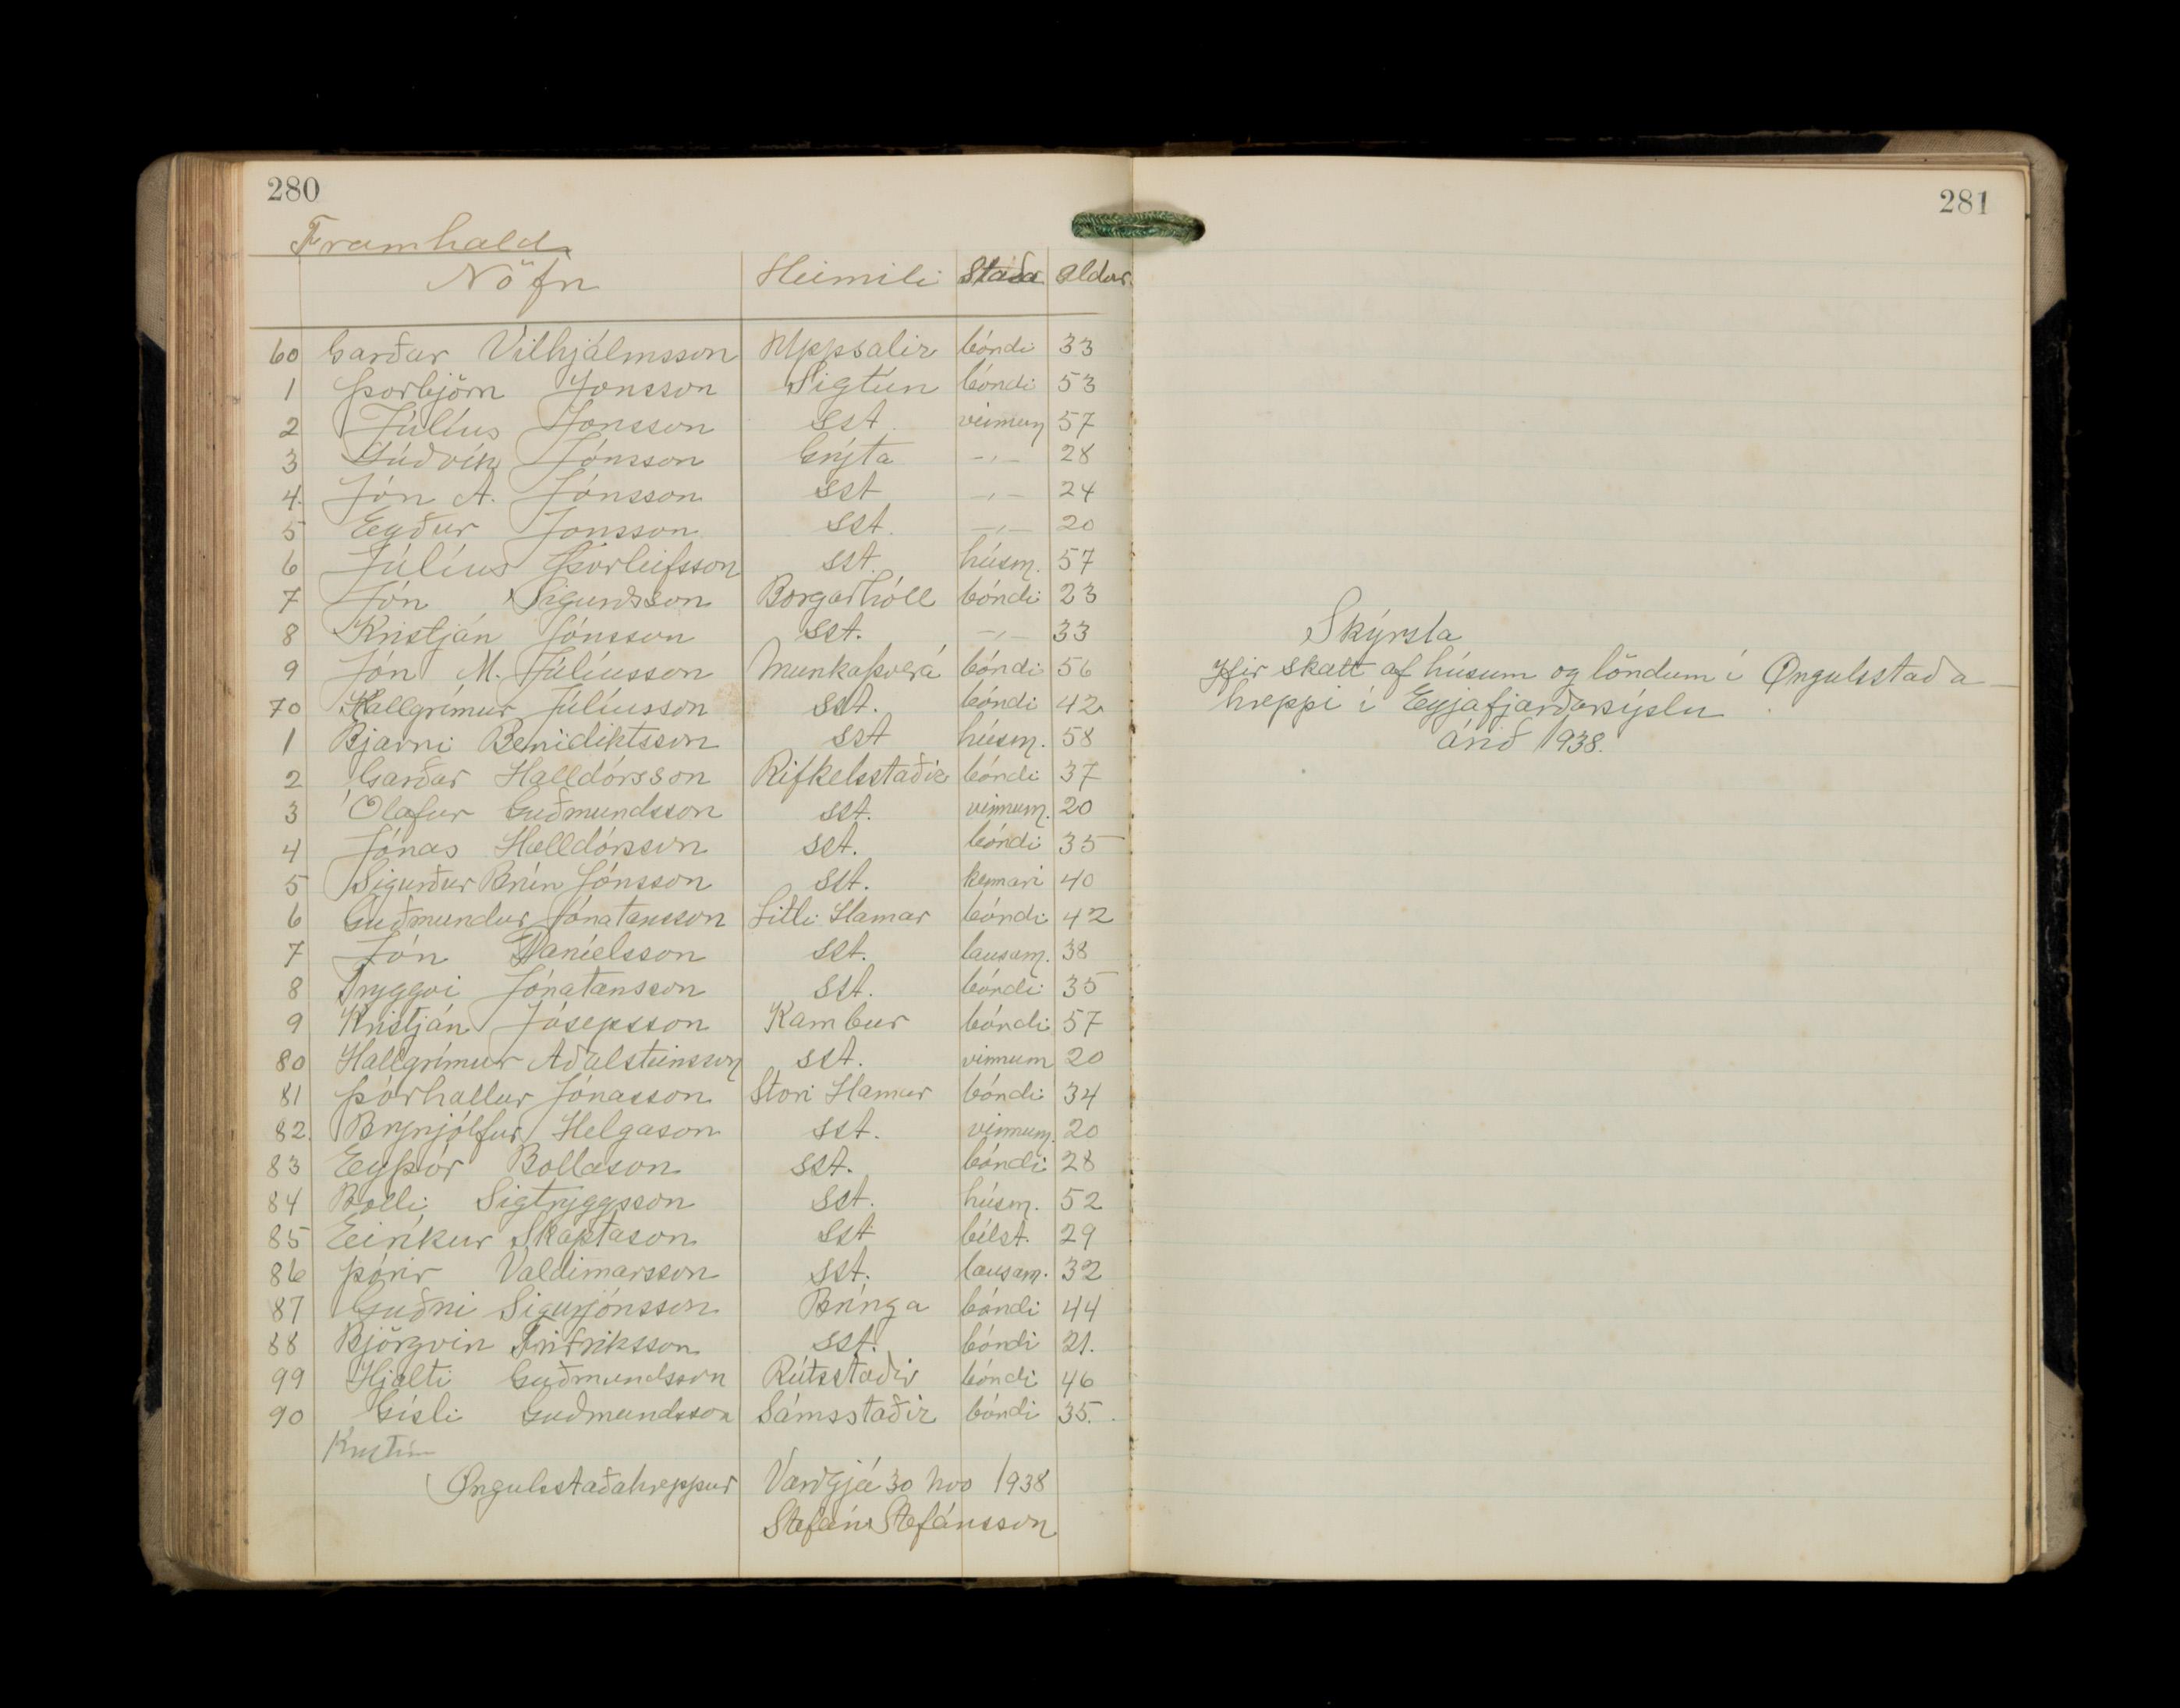 280
Framhald
Nöfn Heimili Staða Aldur
60 Garðar Vilhjálmsson Uppsalir bóndi 33
1 Þorbjörn Jonsson Sigtún bóndi 53
2 Júlíus Jonsson sst. vinnum 57
3 Lúðvík Jónsson Grýta -,- 28
4. Jón A. Jónsson sst -,- 24
5 Eyður Jonsson sst. -,- 20
6 Júlíus Þorleifsson sst. húsm. 57
7 Jón Sigurdsson Borgarhóll bóndi 23
8 Kristján Jónsson sst. -,- 33
9 Jón M. Júlíusson Munkaþverá bóndi 56
70 Hallgrímur Júlíusson sst. bóndi 42
1 Bjarni Benidiktsson sst húsm. 58
2 Garðar Halldórsson Rifkelsstaðir bóndi 37
3 Ólafur Guðmundsson sst. vinnum. 20
4 Jónas Halldórsson sst. bóndi 35
5 Sigurður Brín Jónsson sst. kennari 40
6 Guðmundur Jónatansson Litli Hamar bóndi 42
7 Jón Daníelsson sst. lausam. 38
8 Tryggvi Jónatansson sst. bóndi 35
9 Kristján Jósepsson Kambur bóndi 57
80 Hallgrímur Aðalsteinsson sst. vinnum 20
81 Þórhallur Jónasson Stori Hamar bóndi 34
82. Brynjólfur Helgason sst. vinnum. 20
83 Eyþór Bollason sst. bóndi 28
84 Bolli Sigtryggsson sst. húsm. 52
85 Eiríkur Skaptason sst bílst. 29
86 Þórir Valdimarsson sst. lausam. 32
87 Guðni Sigurjónsson Brínga bóndi 44
88 Björgvin Friðriksson sst. bóndi 21.
99 Hjalti Guðmundsson Rútsstaðir bóndi 46
90 Gísli Guðmundsson Sámsstaðir bóndi 35.
Kristín
Öngulsstaðahreppur Varðgjá 30 nov 1938
Stefán Stefánsson
281
Skýrsla
Yfir skatt af húsum og löndum í Öngulsstaða
hreppi í Eyjafjarðarsýslu
árið 1938.